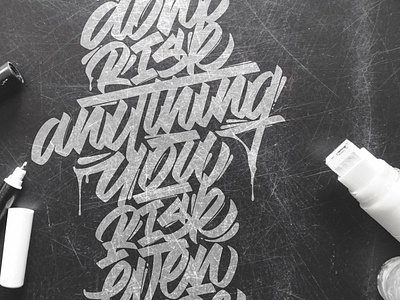 dont
RISK
anything
you
RISK
even